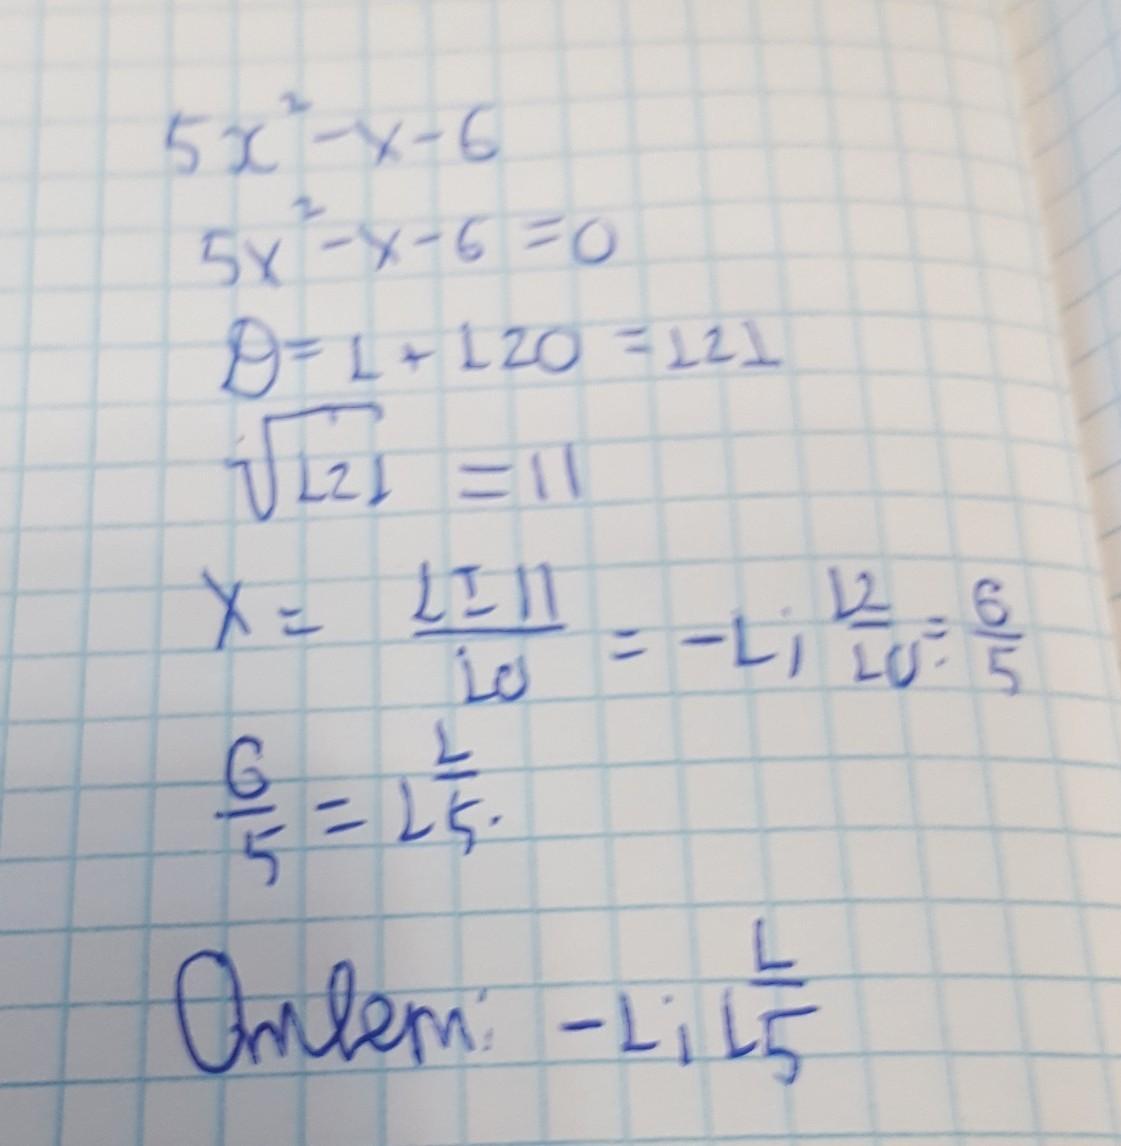 5x² - x - 6
5x² - x - 6 = 0
D = 1 + 120 = 121
√121 = 11
x = (1 ± 11)/10 = -1; 12/10 = 6/5
6/5 = 1 1/5.
Ответ: -1; 1 1/5